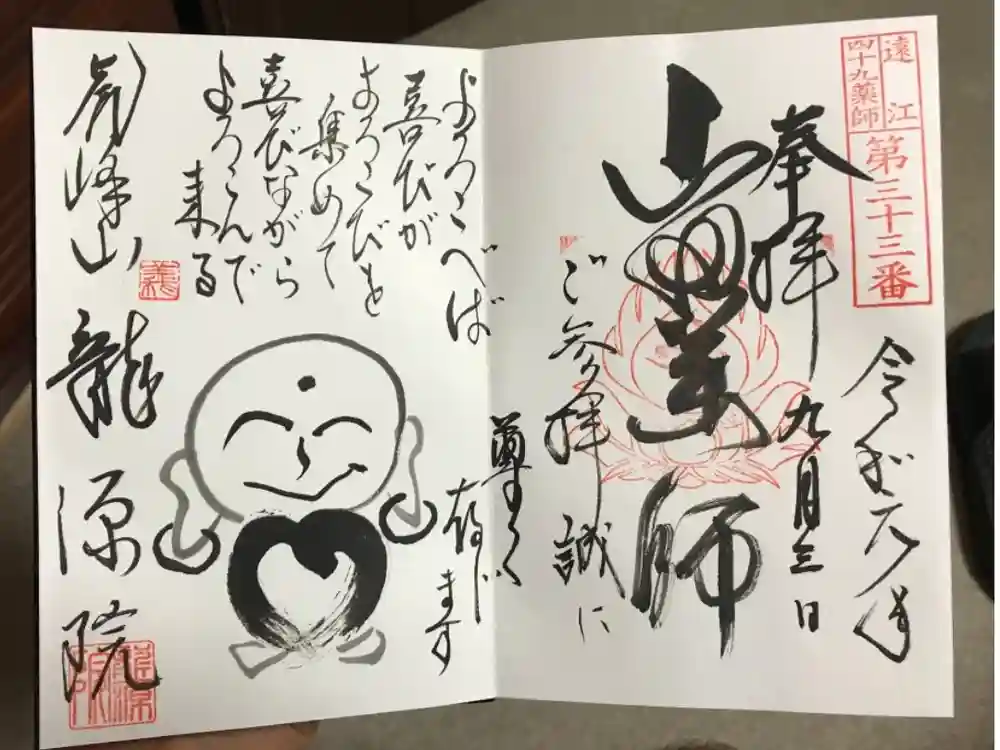 遠江
四十九薬師
第三十三番
令和元年
九月三日
奉拝
山田薬師
ご参拝誠に
尊く
存じます
よろこべば
喜びが
よろこびを
集めて
喜びながら
よろこんで
来る
峰山
龍源院